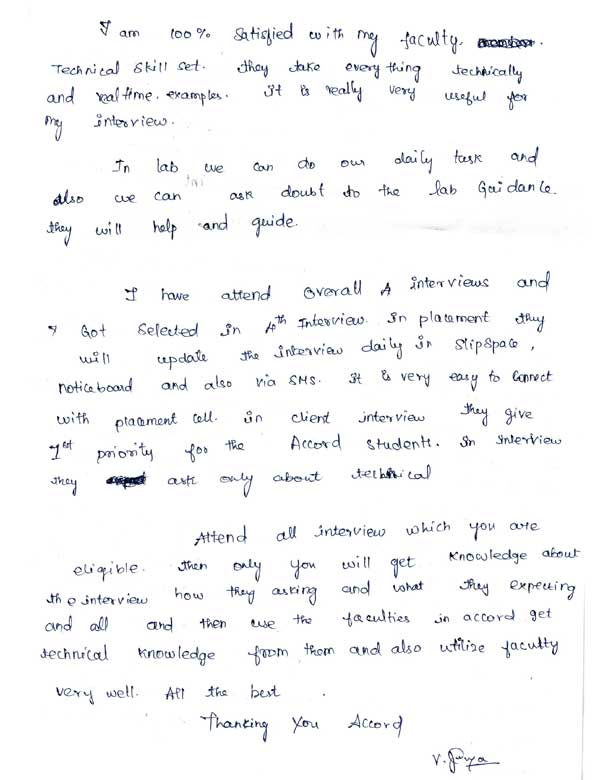 I am 100% Satisfied with my faculty.
Technical Skill set. they take every thing technically
and real time. examples. it is really very useful for
my interview.
In lab we can do our daily task and
also we can ask doubt to the lab Guidance.
they will help and guide.
I have attend overall 4 interviews and
I Got Selected in 4th Interview. In placement they
will update the interview daily in SlipSpace,
noticeboard and also via SMS. it is very easy to Connect
with placement cell. in client interview they give
1st priority for the Accord Students. in interview
they ask only about technical
Attend all interview which you are
eligible. then only you will get knowledge about
the interview how they asking and what they expecting
and all and then use the faculties in accord get
technical knowledge from them and also utilize faculty
very well. All the best.
Thanking You Accord